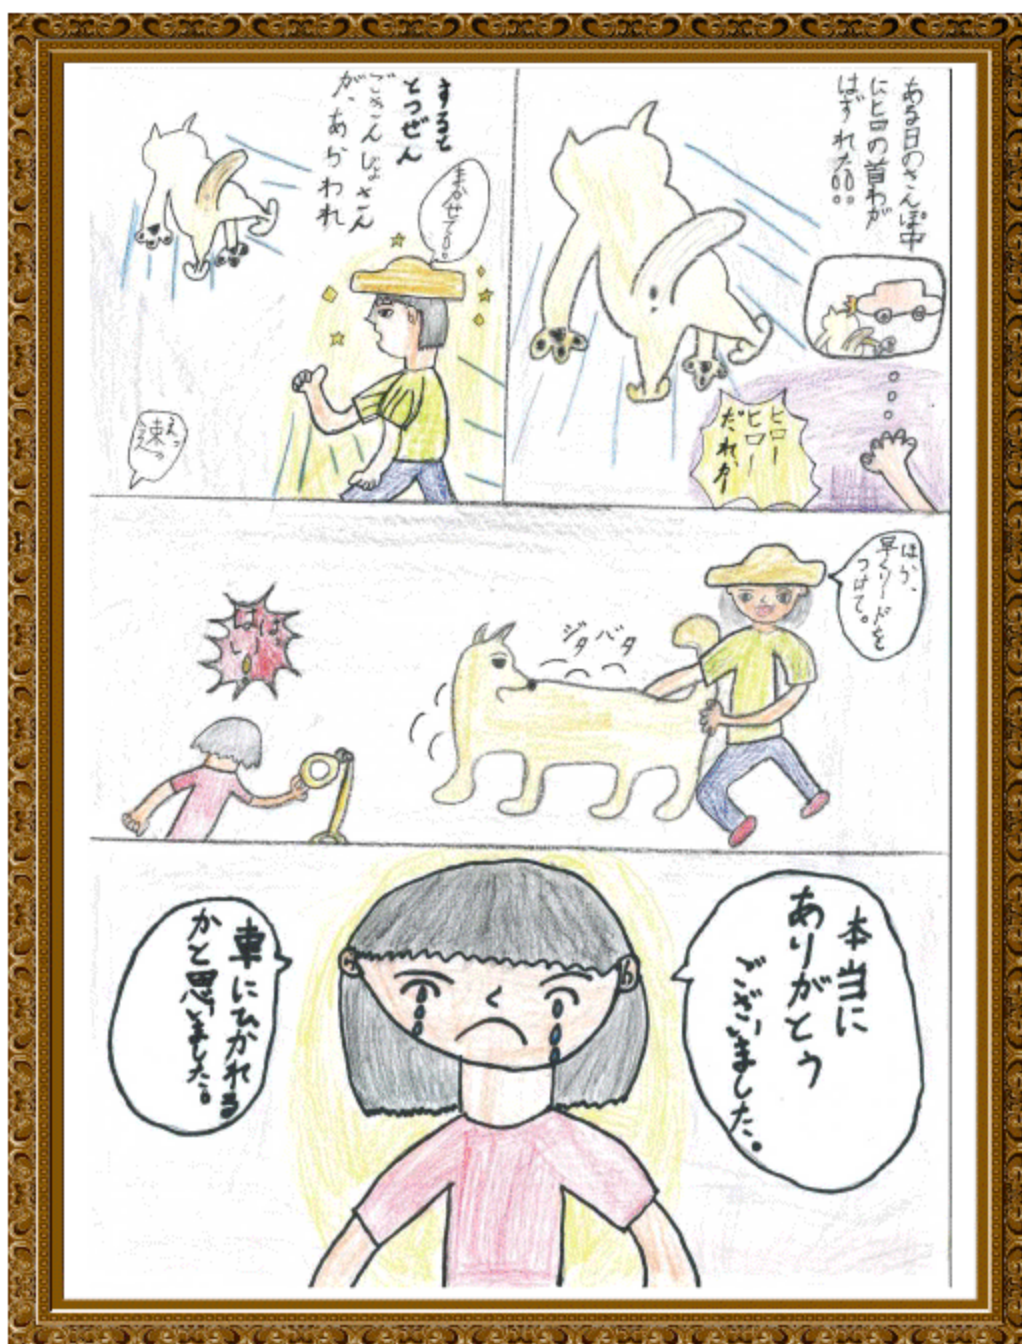 ある日のさんぽ中
にヒロの首わが
はずれた!!
ヒロー
ヒロー
だれか
すると
とつぜん
ごきんじょさん
が、あらわれ
まかせて!!
ほら、
早くリードを
つけて。
ジタバタ
本当に
ありがとう
ございました。
車にひかれる
かと思いました。